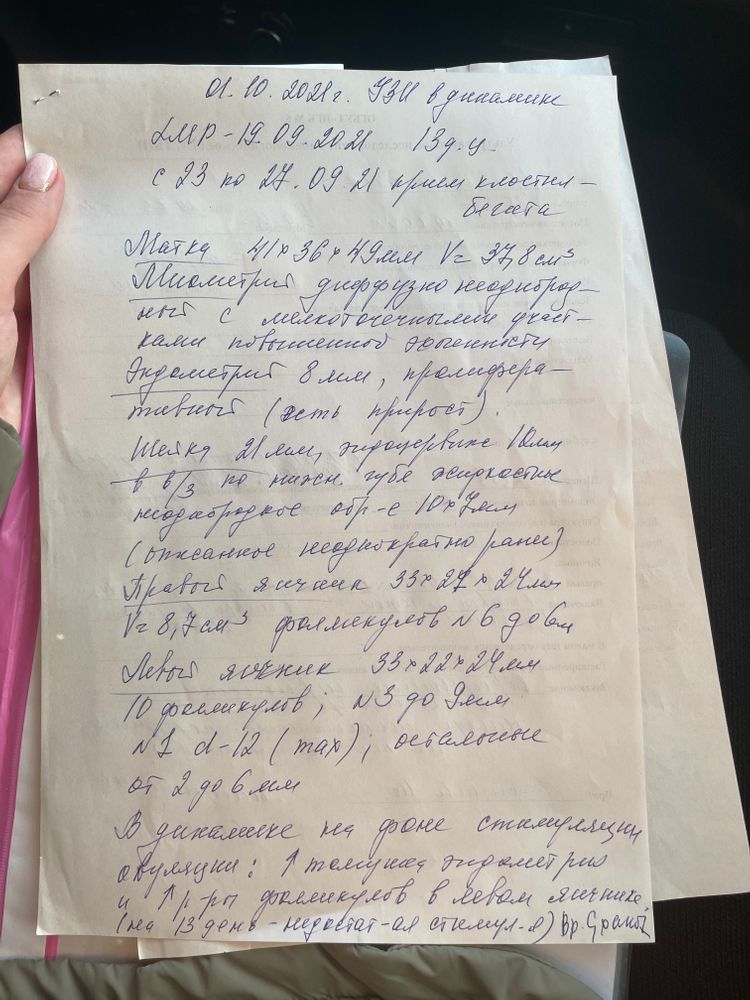 01.10.2021г. УЗИ в динамике
LMP - 19.09.2021 13 д.ц.
с 23 по 27.09.21 прием клостил-
бегита
Матка 41×36×49мм V= 37,8 см³
Миометрий диффузно неоднород-
ный с мелкоточечными участ-
ками повышенной эхогенности
Эндометрий 8 мм, пролифера-
тивный (есть прирост).
Шейка 21 мм, эндоцервикс 10мм
в в/3 по нижн. губе жидкостное
неоднородное обр-е 10×7мм
(описанное неоднократно ранее)
Правый яичник 33×27×24мм
V= 8,7 см³ фолликулов N6 до 6м
Левый яичник 33×22×24мм
10 фолликулов; N3 до 9мм
N1 d-12 (max); остальные
от 2 до 6 мм
В динамике на фоне стимуляции
овуляции: ↑ толщина эндометрия
и ↑ р-ры фолликулов в левом яичнике
(на 13 день - недостат-ая стимул-я) Вр.